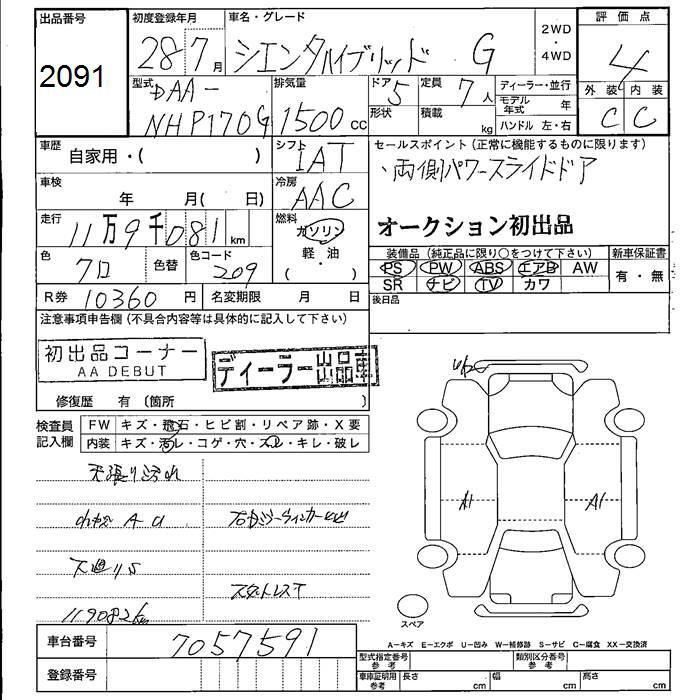 出品番号
2091
初度登録年月
28年7月
車名・グレード
シエンタハイブリッド G
2WD
・
4WD
評価点
4
外装 内装
C C
型式
DAA-
NHP170G
排気量
1500cc
ドア 5
形状
定員 7人
積載 kg
ディーラー・並行
モデル年式 年
ハンドル 左・右
車歴
自家用・( )
シフト
IAT
セールスポイント(正常に機能するものに限ります)
・両側パワースライドドア
車検
年 月( 日)
冷房
AAC
オークション初出品
走行
11万9千081km
燃料
ガソリン
軽・油
( )
色
クロ
色替
色コード
209
装備品(純正品に限り○をつけて下さい)
PS PW ABS エアB AW
SR ナビ TV カワ
新車保証書
有・無
R券 10360円
名変期限 月 日
後日品
注意事項申告欄(不具合内容等は具体的に記入して下さい)
初出品コーナー
AA DEBUT
ディーラー出品車
修復歴 有(箇所 )
検査員
記入欄
FW キズ・飛石・ヒビ割・リペア跡・X要
内装 キズ・汚レ・コゲ・穴・スレ・キレ・破レ
天張り汚れ
下廻りS
スタットレスT
119082km
A1
A1
スペア
車台番号
7057591
登録番号
A-キズ E-エクボ U-凹み W-補修跡 S-サビ C-腐食 XX-交換済
型式指定番号
参考
類別区分番号
参考
車庫証明用
参考
長さ cm
幅 cm
高さ cm